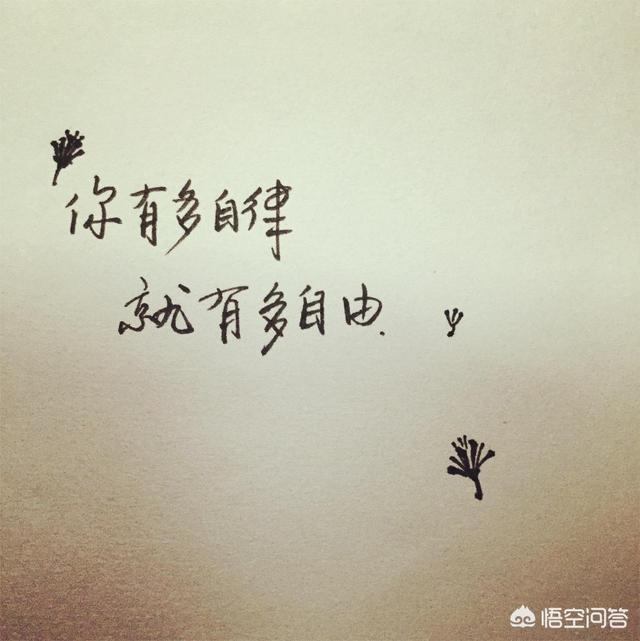 你有多自律
就有多自由.
悟空问答